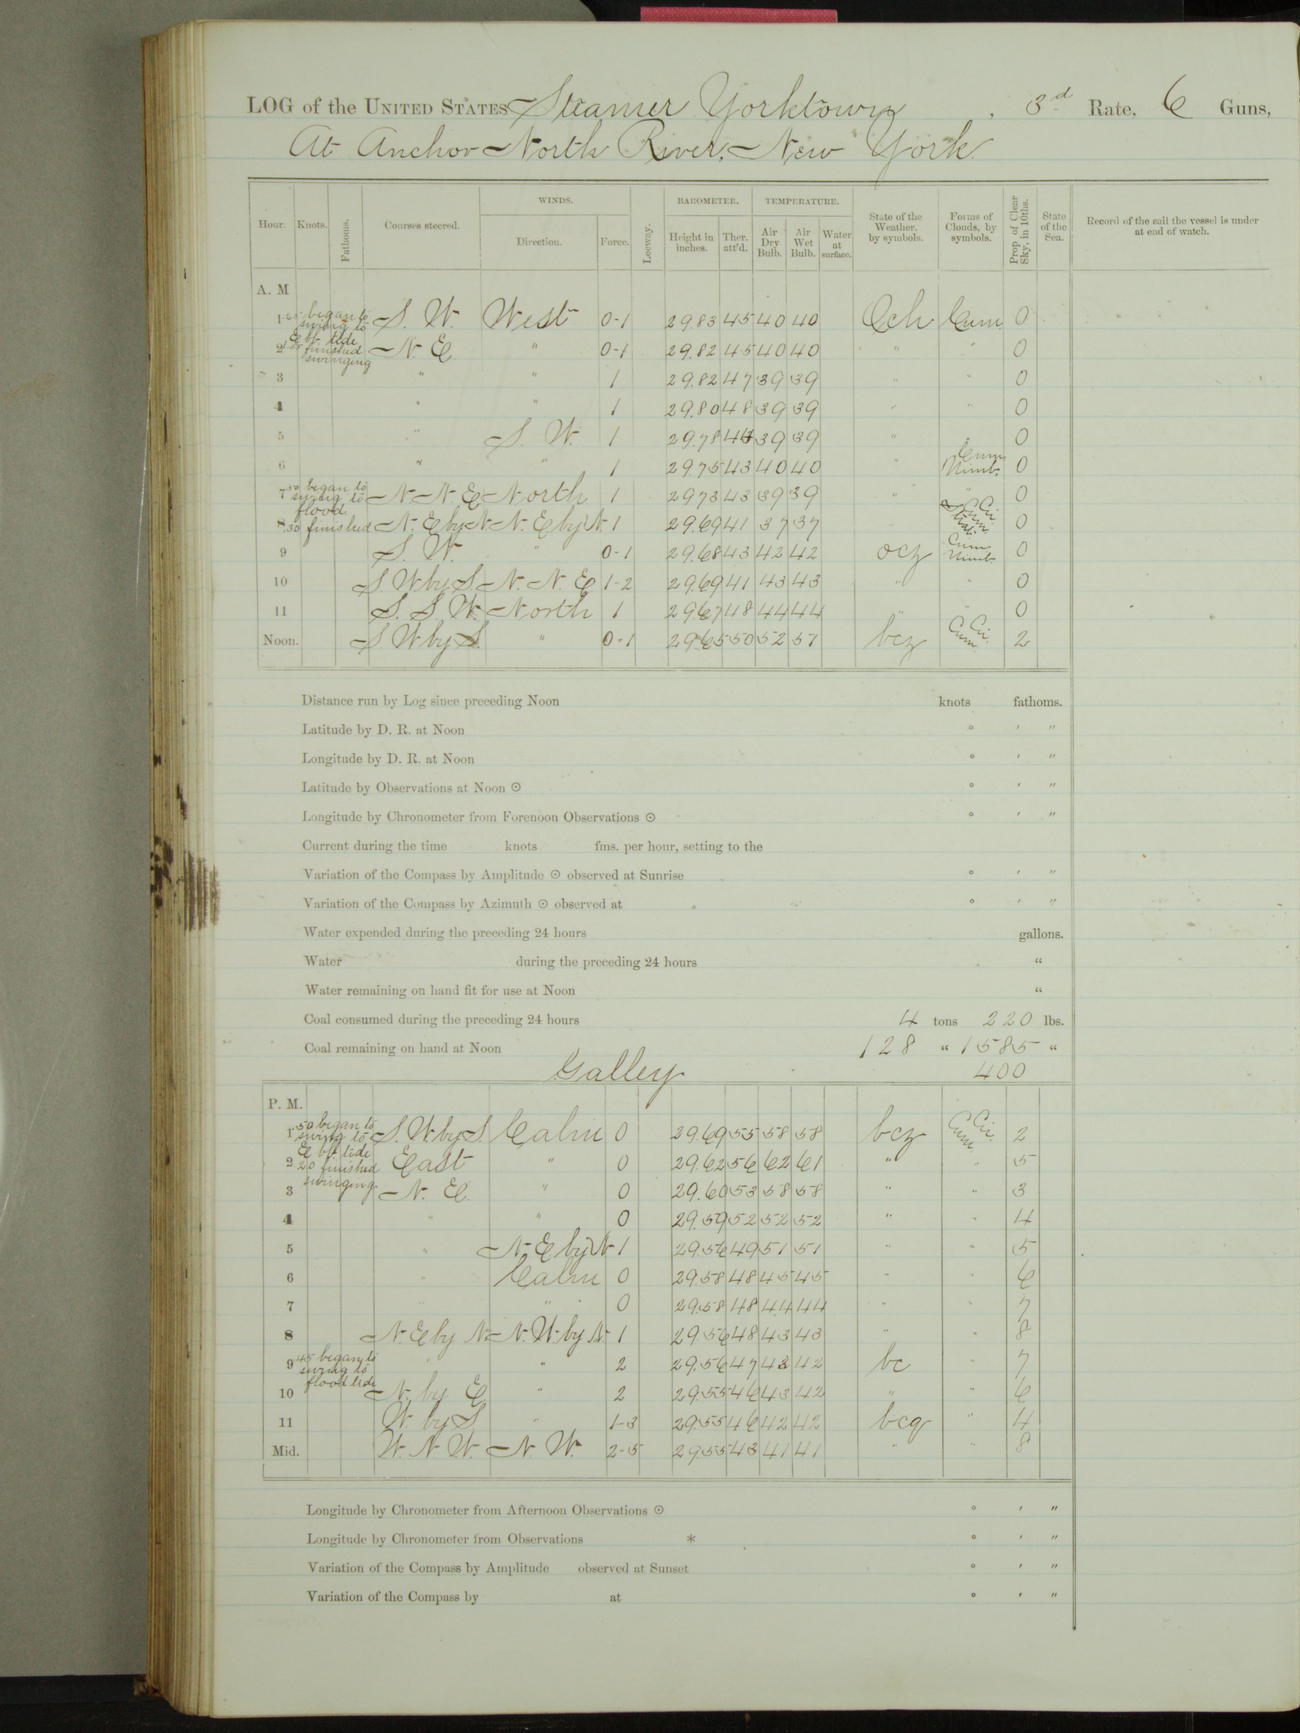 LOG of the UNITED STATES Steamer Yorktown, 3d Rate, 6 Guns,
At Anchor North River, New York
Hour. Knots. Fathoms. Courses steered. WINDS. Direction. Force. Leeway. BAROMETER. Height in inches. Ther. att'd. TEMPERATURE. Air Dry Bulb. Air Wet Bulb. Water at surface. State of the Weather, by symbols. Forms of Clouds, by symbols. Prop of Clear Sky, in 10ths. State of the Sea. Record of the sail the vessel is under at end of watch.
A. M
1 began to swing to S. W. West 0-1 29.83 45 40 40 Och Cum 0
2 Ebb tide finished swinging N E " 0-1 29.82 45 40 40 " " 0
3 " " 1 29.82 47 39 39 " " 0
4 " " 1 29.80 48 39 39 " " 0
5 " S. W. 1 29.78 44 39 39 " " 0
6 " " 1 29.75 43 40 40 Cum Nimb. 0
7 50 began to swing to flood N N E North 1 29.73 43 39 39 " " 0
8 30 finished N. E by N N. E by N 1 29.69 41 37 37 " Cir. Cum. Strat. 0
9 S. W. " 0-1 29.68 43 42 42 ocz Cum Nimb. 0
10 S W by S N. N. E 1-2 29.69 41 43 43 " " 0
11 S. S. W. North 1 29.67 48 44 44 " " 0
Noon. S W by S. " 0-1 29.65 50 52 57 bcz Cir. Cum 2
Distance run by Log since preceding Noon knots fathoms.
Latitude by D. R. at Noon ° ′ ″
Longitude by D. R. at Noon ° ′ ″
Latitude by Observations at Noon ⊙ ° ′ ″
Longitude by Chronometer from Forenoon Observations ⊙ ° ′ ″
Current during the time knots fms. per hour, setting to the
Variation of the Compass by Amplitude ⊙ observed at Sunrise ° ′ ″
Variation of the Compass by Azimuth ⊙ observed at ° ′ ″
Water expended during the preceding 24 hours gallons.
Water during the preceding 24 hours "
Water remaining on hand fit for use at Noon "
Coal consumed during the preceding 24 hours 4 tons 220 lbs.
Coal remaining on hand at Noon 128 " 1585 "
Galley 400
P. M.
1 50 began to swing to S. W by S. Calm 0 29.69 55 58 58 bcz Cir. Cum. 2
2 Ebb tide 20 finished swinging East " 0 29.62 56 62 61 " " 5
3 N. E. " 0 29.60 53 58 58 " " 3
4 " " 0 29.59 52 52 52 " " 4
5 " N. E by N 1 29.56 49 51 51 " " 5
6 " Calm 0 29.58 48 45 45 " " 6
7 " " 0 29.58 48 44 44 " " 7
8 N. E by N. N. W. by N. 1 29.56 48 43 43 " " 8
9 45 began to swing to flood tide " " 2 29.56 47 43 42 bc " 7
10 N. by E " 2 29.55 46 43 42 " " 6
11 W. by S " 1-3 29.55 46 42 42 bcq " 4
Mid. W. N W. N. W. 2-5 29.55 43 41 41 " " 8
Longitude by Chronometer from Afternoon Observations ⊙ ° ′ ″
Longitude by Chronometer from Observations * ° ′ ″
Variation of the Compass by Amplitude observed at Sunset ° ′ ″
Variation of the Compass by at ° ′ ″